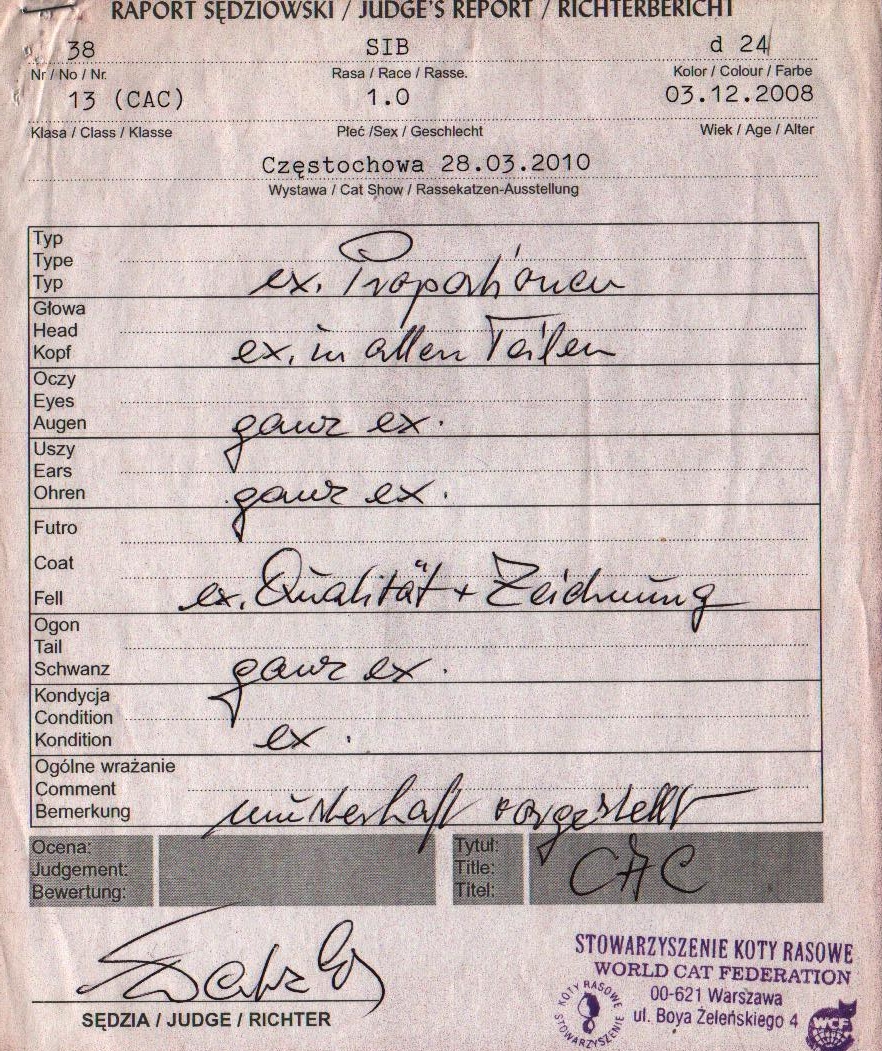 RAPORT SĘDZIOWSKI / JUDGE'S REPORT / RICHTERBERICHT
38 SIB d 24
Nr / No / Nr. Rasa / Race / Rasse. Kolor / Colour / Farbe
13 (CAC) 1.0 03.12.2008
Klasa / Class / Klasse Płeć /Sex / Geschlecht Wiek / Age / Alter
Częstochowa 28.03.2010
Wystawa / Cat Show / Rassekatzen-Ausstellung
Typ
Type
Typ ex. Proportionen
Głowa
Head
Kopf ex. in allen Teilen
Oczy
Eyes
Augen ganz ex.
Uszy
Ears
Ohren ganz ex.
Futro
Coat
Fell ex. Qualität + Zeichnung
Ogon
Tail
Schwanz ganz ex.
Kondycja
Condition
Kondition ex.
Ogólne wrażanie
Comment
Bemerkung musterhaft vorgestellt
Ocena: Tytuł:
Judgement: Title: CAC
Bewertung: Titel:
SĘDZIA / JUDGE / RICHTER
STOWARZYSZENIE KOTY RASOWE
WORLD CAT FEDERATION
00-621 Warszawa
ul. Boya Żeleńskiego 4
KOTY RASOWE
STOWARZYSZENIE
WCF